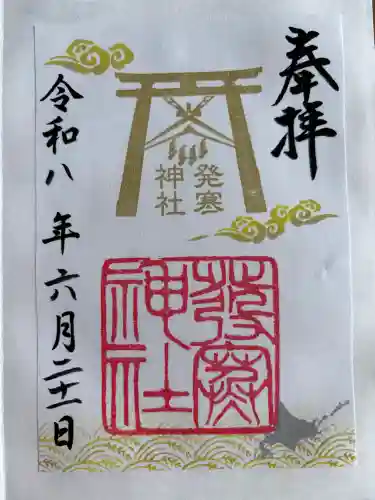 奉拝
発寒
神社
發寒
神社
令和八年六月二十一日